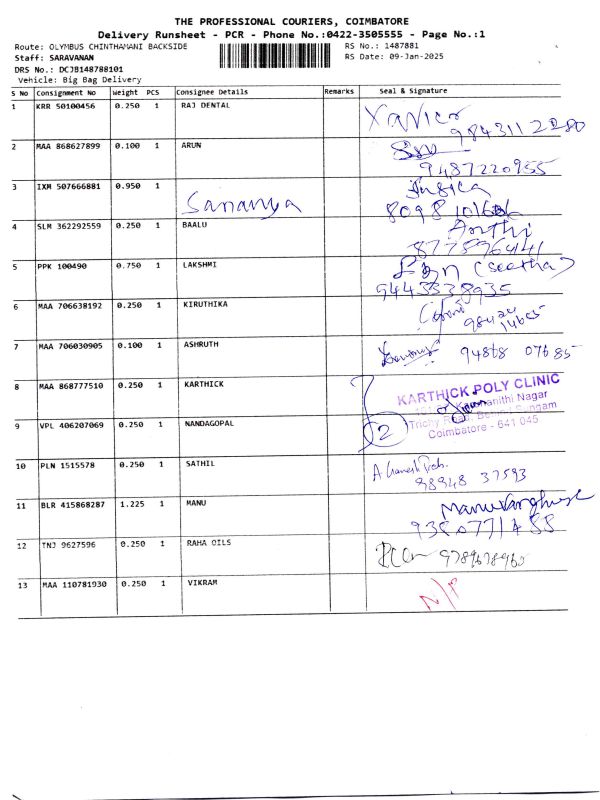 THE PROFESSIONAL COURIERS, COIMBATORE
Delivery Runsheet - PCR - Phone No.:0422-3505555 - Page No.:1
Route: OLYMBUS CHINTHAMANI BACKSIDE RS No.: 1487881
Staff: SARAVANAN RS Date: 09-Jan-2025
DRS No.: DCJB148788101
Vehicle: Big Bag Delivery
S No Consignment No Weight PCS Consignee Details Remarks Seal & Signature
1 KRR 50100456 0.250 1 RAJ DENTAL Xavier
9843112280
2 MAA 868627899 0.100 1 ARUN
9487220955
3 IXM 507666881 0.950 1 Sananya
4 SLM 362292559 0.250 1 BAALU
5 PPK 100490 0.750 1 LAKSHMI (Seetha)
9443338935
6 MAA 706638192 0.250 1 KIRUTHIKA
7 MAA 706030905 0.100 1 ASHRUTH 94868 07685
8 MAA 868777510 0.250 1 KARTHICK KARTHICK POLY CLINIC
9 VPL 406207069 0.250 1 NANDAGOPAL 2
Coimbatore - 641 045
10 PLN 1515578 0.250 1 SATHIL
98948 37593
11 BLR 415868287 1.225 1 MANU Manu Varghese
12 TNJ 9627596 0.250 1 RAHA OILS
13 MAA 110781930 0.250 1 VIKRAM N/P